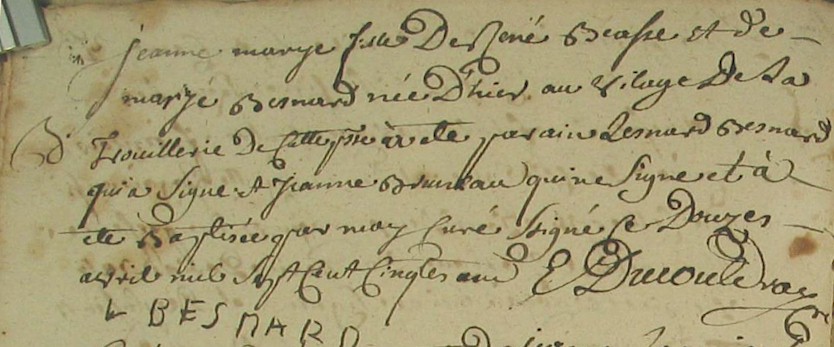 Jeanne marye fille De René Beasse et de
maryé Besnard née D'hier au vilage De La
B Trouillerie De Cette psse à ete parain Lesnard Besnard
qui a Signé et Jeanne Bruneau qui ne Signe et à
ete Baptisée par moy Curé Signé ce Douzes
avril mil Sept Cent Cinqte un E Ducouldray
L BESNARD